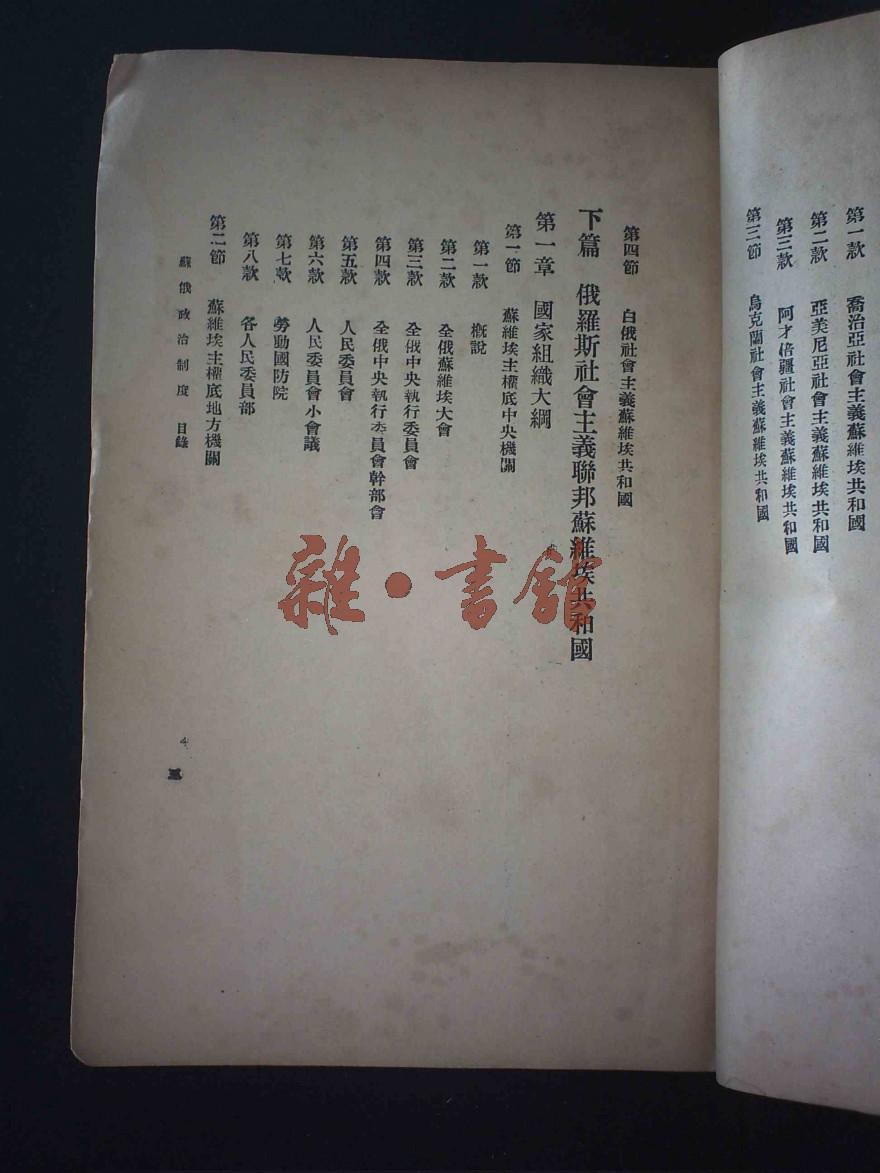 第一款　喬治亞社會主義蘇維埃共和國
第二款　亞美尼亞社會主義蘇維埃共和國
第三款　阿才倍疆社會主義蘇維埃共和國
第三節　烏克蘭社會主義蘇維埃共和國
第四節　白俄社會主義蘇維埃共和國
下篇　俄羅斯社會主義聯邦蘇維埃共和國
第一章　國家組織大綱
第一節　蘇維埃主權底中央機關
第一款　概說
第二款　全俄蘇維埃大會
第三款　全俄中央執行委員會
第四款　全俄中央執行委員會幹部會
第五款　人民委員會
第六款　人民委員會小會議
第七款　勞動國防院
第八款　各人民委員部
第二節　蘇維埃主權底地方機關
蘇俄政治制度　目錄
雜·書館